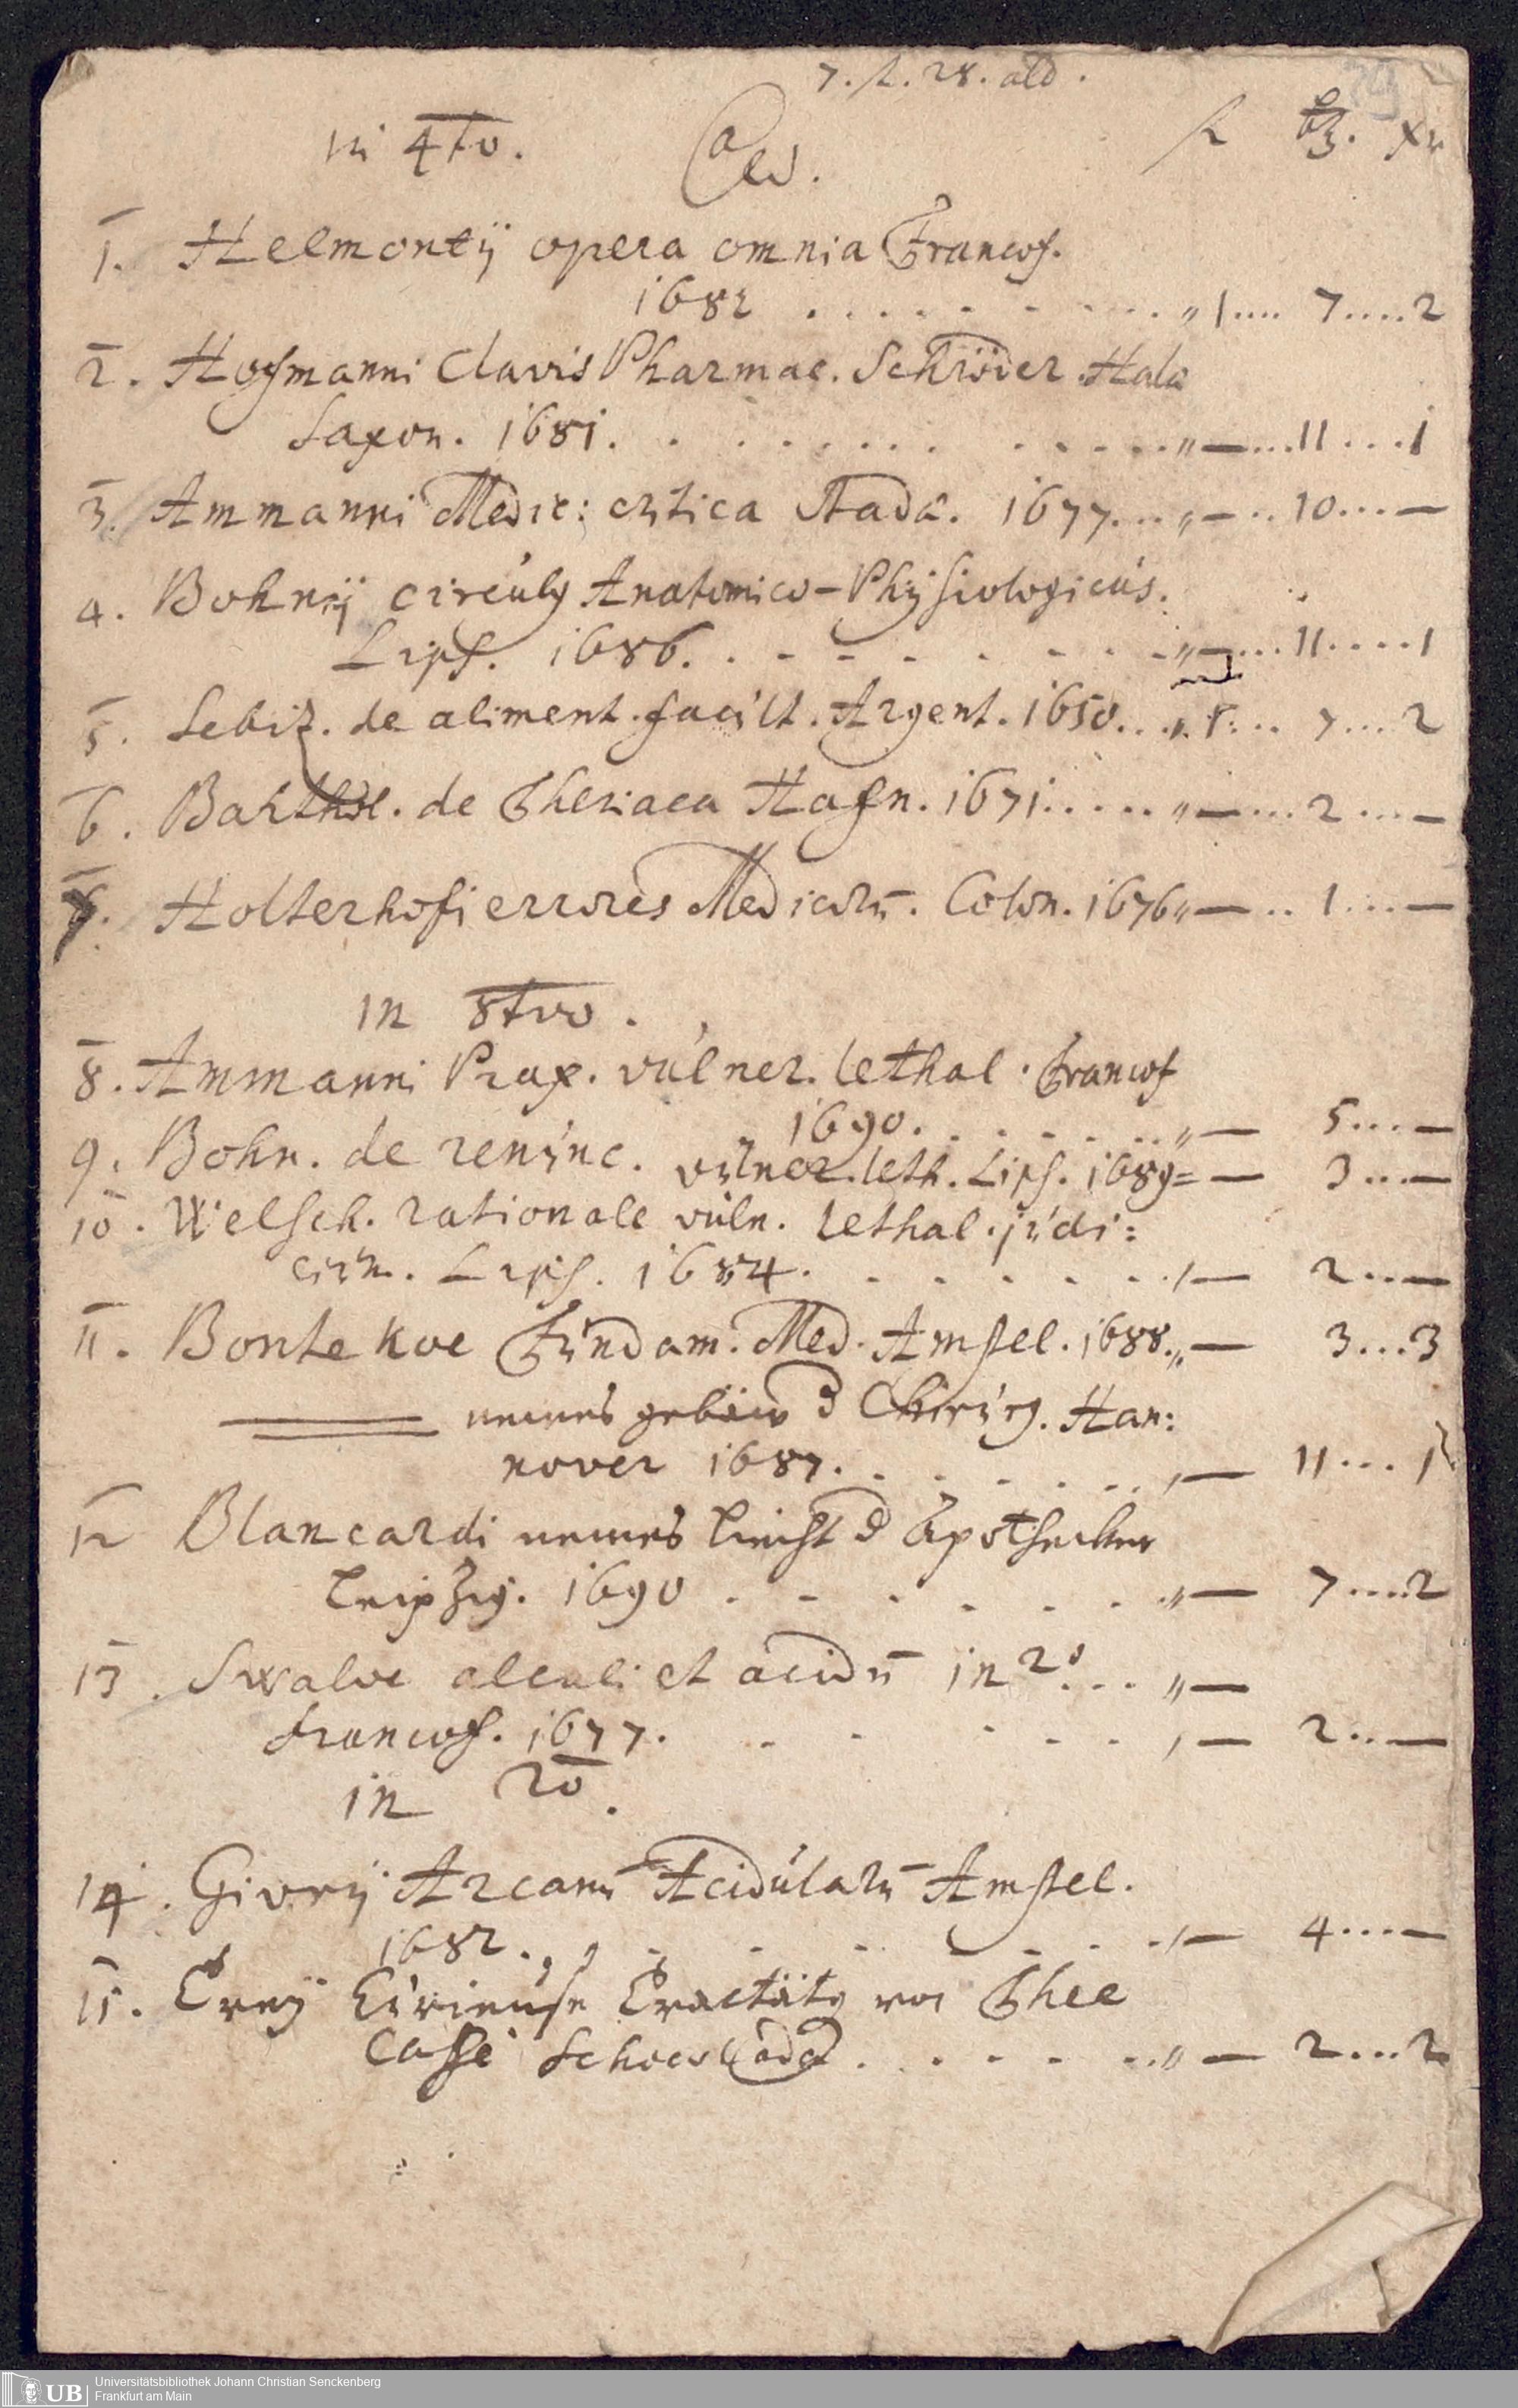 7. fl. 28. alb.
in 4to. fl bz. xr
1. Helmontij opera omnia Francof.
1682 . . . . . . . . . „ 1.... 7.....2
2. Hofmanni Clavis Pharmac. Schröder. Hala
Saxon. 1681. . . . . . . . . . . . . „—....11....1
3. Ammanni Medic: critica Stadae. 1677...„—..10...—
4. Bohnij circulus Anatomico-Physiologicus.
Lips. 1686. . - - - - - - - „—...11....1
5. Sebiz. de aliment. facult. Argent. 1650...„ 1.... 7....2
6. Barthol. de Theriaca Hafn. 1671.....„—...2...—
7. Holterhofi errores Medicorū. Colon. 1676„—..1....—
in 8tvo.
8. Ammanni Prax. vulner. lethal. Francof
1690. . . . . . . „— 5...—
9. Bohn. de renunc. vulner. leth. Lips. 1689=— 3...—
10. Welsch. rationale vuln. lethal. judi:
ciū. Lips. 1684. . . . . . . .— 2...—
11. Bontekoe Fundam. Med. Amstel. 1688.„— 3...3
—— neues gebäw d Chirurg. Han:
nover 1687. . . . . . . . ,— 11...1
12 Blancardi neues liecht d Apothecker
Leipzig. 1690 . - . . . . . „— 7.....2
13. Swalve alcali et acidū in 20... „—
Francof. 1677. . . . . . . ,— 2...—
in 20.
14. Givrij Arcanū Acidularū Amstel.
1682. . . . . . . . .— 4....—
15. Drey Curieuse Tractätg von Thee
Caffé . . . . . .„— 2...2
UB
Universitätsbibliothek Johann Christian Senckenberg
Frankfurt am Main